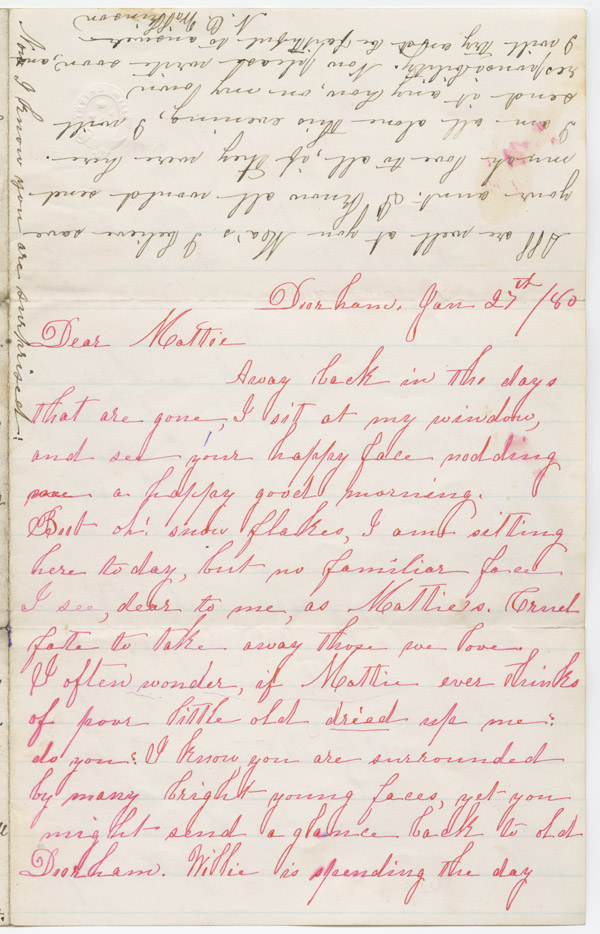 Doorham, Jan 27th/80
Dear Mattie
Away back in the days
that are gone, I sit at my window,
and see your happy face nodding
me a happy good morning.
But oh! snow flakes, I am sitting
here today, but no familiar face
I see, dear to me, as Mattie's. Cruel
fate to take away those we love.
I often wonder, if Mattie ever thinks
of poor little old dried up me:
do you? I know you are surrounded
by many bright young faces, yet you
might send a glance back to old
Doorham. Willie is spending the day
All are well at you Moa's I believe save
your aunt. I know all would send
much love to all, if they were here.
I am all alone this evening, I will
send it any how, on my own
responsibility. Now please write soon, and
I will try and be faithful to answer
N. C.
Now I know you are surprised!